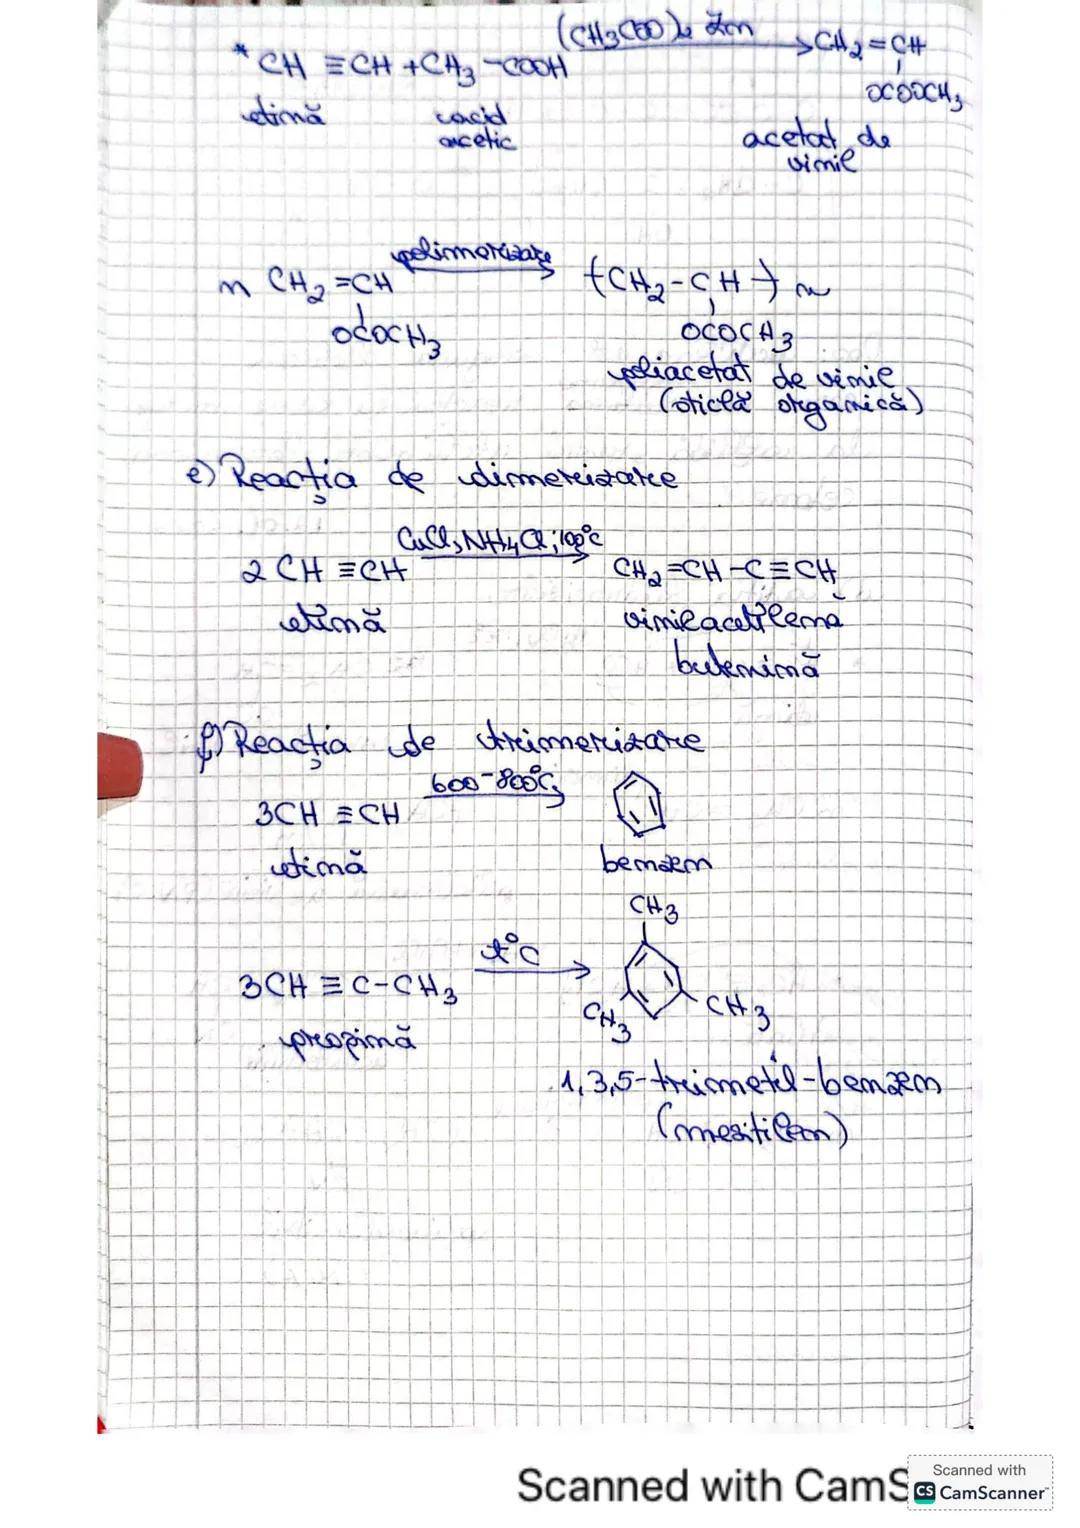 * CH ≡ CH + CH3 - COOH (CH3COO)2 Zn → CH2 = CH
OCOOCH3
etină acid acetic acetat de vinil
n CH2 = CH polimerizare → (CH2 - CH)n
OCOCH3 OCOCH3
poliacetat de vinil
(sticlă organică)
e) Reacția de dimerizare
2 CH ≡ CH CuCl, NH4Cl; 100°C → CH2 = CH - C ≡ CH
etină vinilacetilena
butenină
f) Reacția de trimerizare
3CH ≡ CH 600-800°C →
etină benzen
CH3
3CH ≡ C - CH3 t°C →
CH3 CH3
propină
1,3,5-trimetil-benzen
(mesitilen)
Scanned with CamS
Scanned with
CS CamScanner